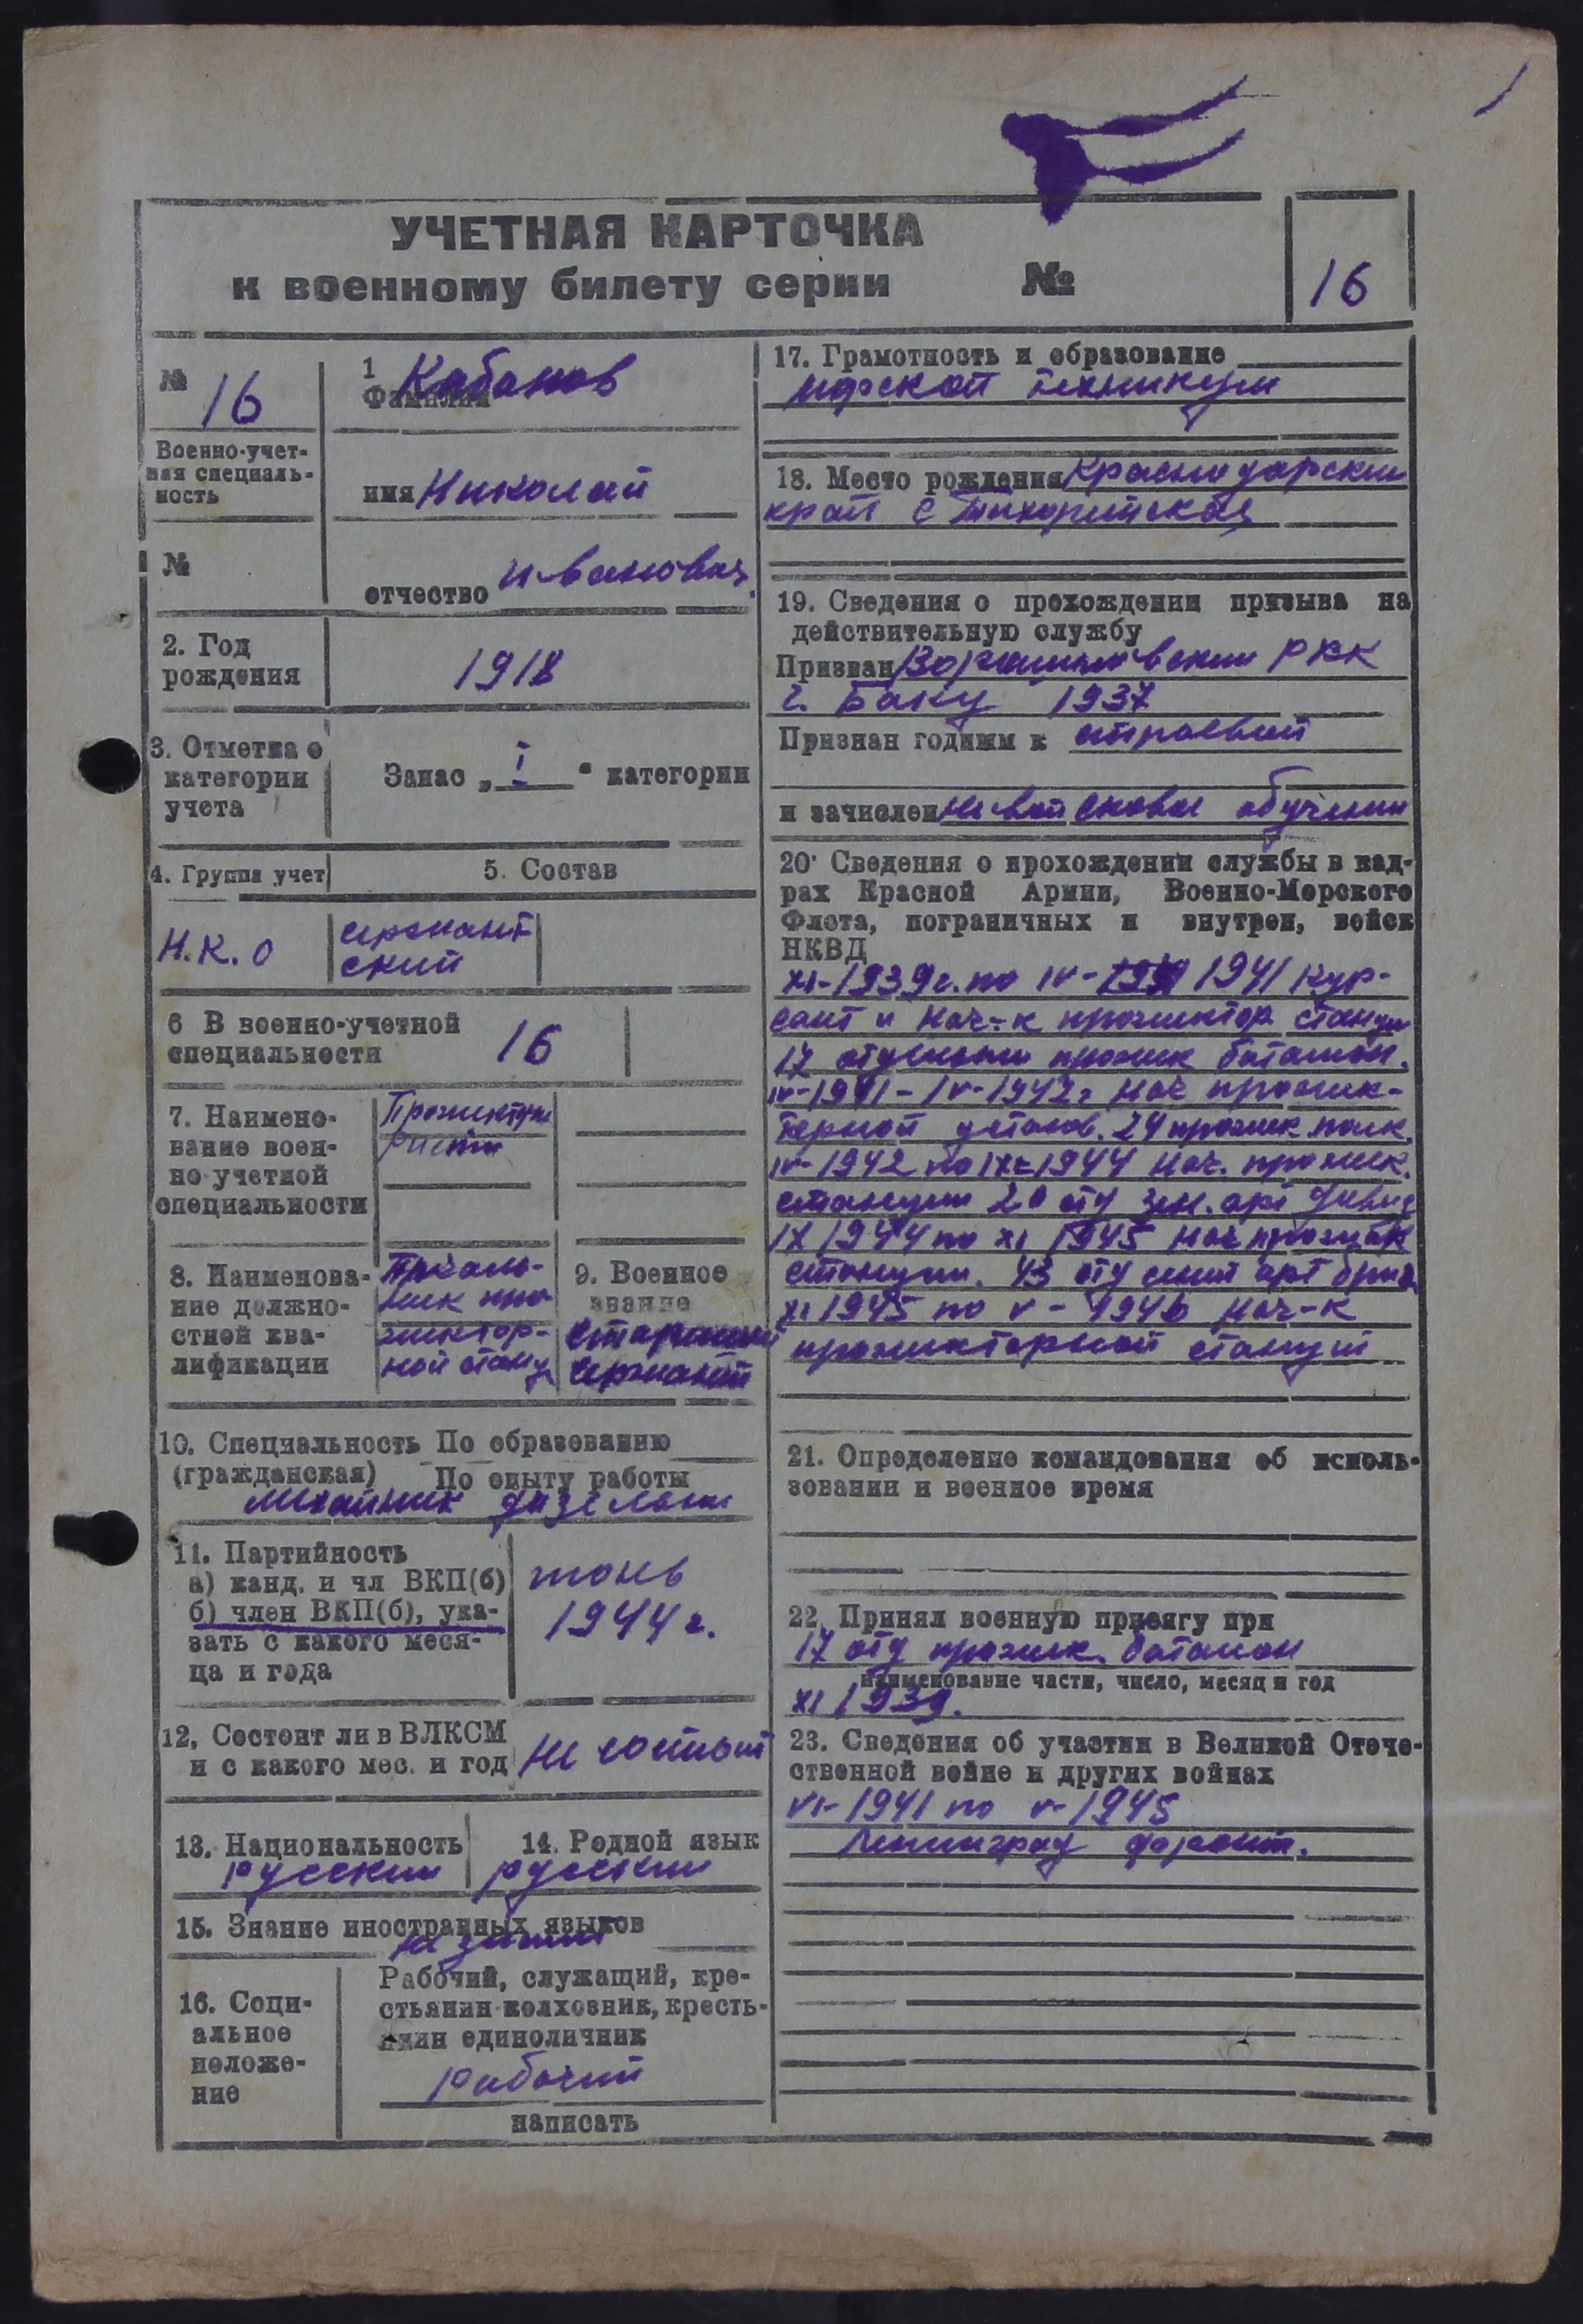 УЧЕТНАЯ КАРТОЧКА
к военному билету серии №
16
№ 16
Военно-учет-
ная специаль-
ность
№
1 Фамилия Кабанов
имя Николай
отчество Иванович
2. Год
рождения
1918
3. Отметка о
категории
учета
Запас „ I “ категории
4. Группа учет
5. Состав
Н.К.О
сержант
ский
6 В военно-учетной
специальности
16
7. Наимено-
вание воен-
но-учетной
специальности
Прожекто
ристы
8. Наименова-
ние должно-
стной ква-
лификации
жектор-
ной станц
9. Военное
звание
Старший
Сержант
10. Специальность По образованию
(гражданская) По опыту работы
механик
11. Партийность
а) канд. и чл ВКП(б)
б) член ВКП(б), ука-
зать с какого меся-
ца и года
июнь
1944 г.
12, Состоит ли в ВЛКСМ
и с какого мес. и год
не состоит
13. Национальность
русский
14. Родной язык
русский
15. Знание иностранных языков
не знает
16. Соци-
альное
положе-
ние
Рабочий, служащий, кре-
стьянин-колхозник, кресть-
янин единоличник
Рабочий
написать
17. Грамотность и образование
морской техникум
18. Место рождения Краснодарский
край с Тихорецкая
19. Сведения о прохождении призыва на
действительную службу
Призван Ворошиловским РВК
г. Баку 1937
Признан годным к строевой
и зачислен не войсковое обучение
20. Сведения о прохождении службы в кад-
рах Красной Армии, Военно-Морского
Флота, пограничных и внутрен, войск
НКВД
XI-1939г. по IV- 1941 кур-
сант и Нач-к прожектор станции
17 отдельный прожек батальон.
IV-1941-IV-1942г Нач прожек-
терной установ. 24 прожек полк.
IV-1942 по IX-1944 Нач. прожек.
станции 20 отд зен. арт дивиз
IX 1944 по XI 1945 Нач прожек
станции. 43 отд арт бриг
XI 1945 по V-1946 Нач-к
прожекторной станции
21. Определение командования об исполь-
зовании в военное время
22. Принял военную присягу при
17 отд прожек. батальон
наименование части, число, месяц и год
XI 1939.
23. Сведения об участии в Великой Отече-
ственной войне и других войнах
VI-1941 по V-1945
Ленинград фронт.